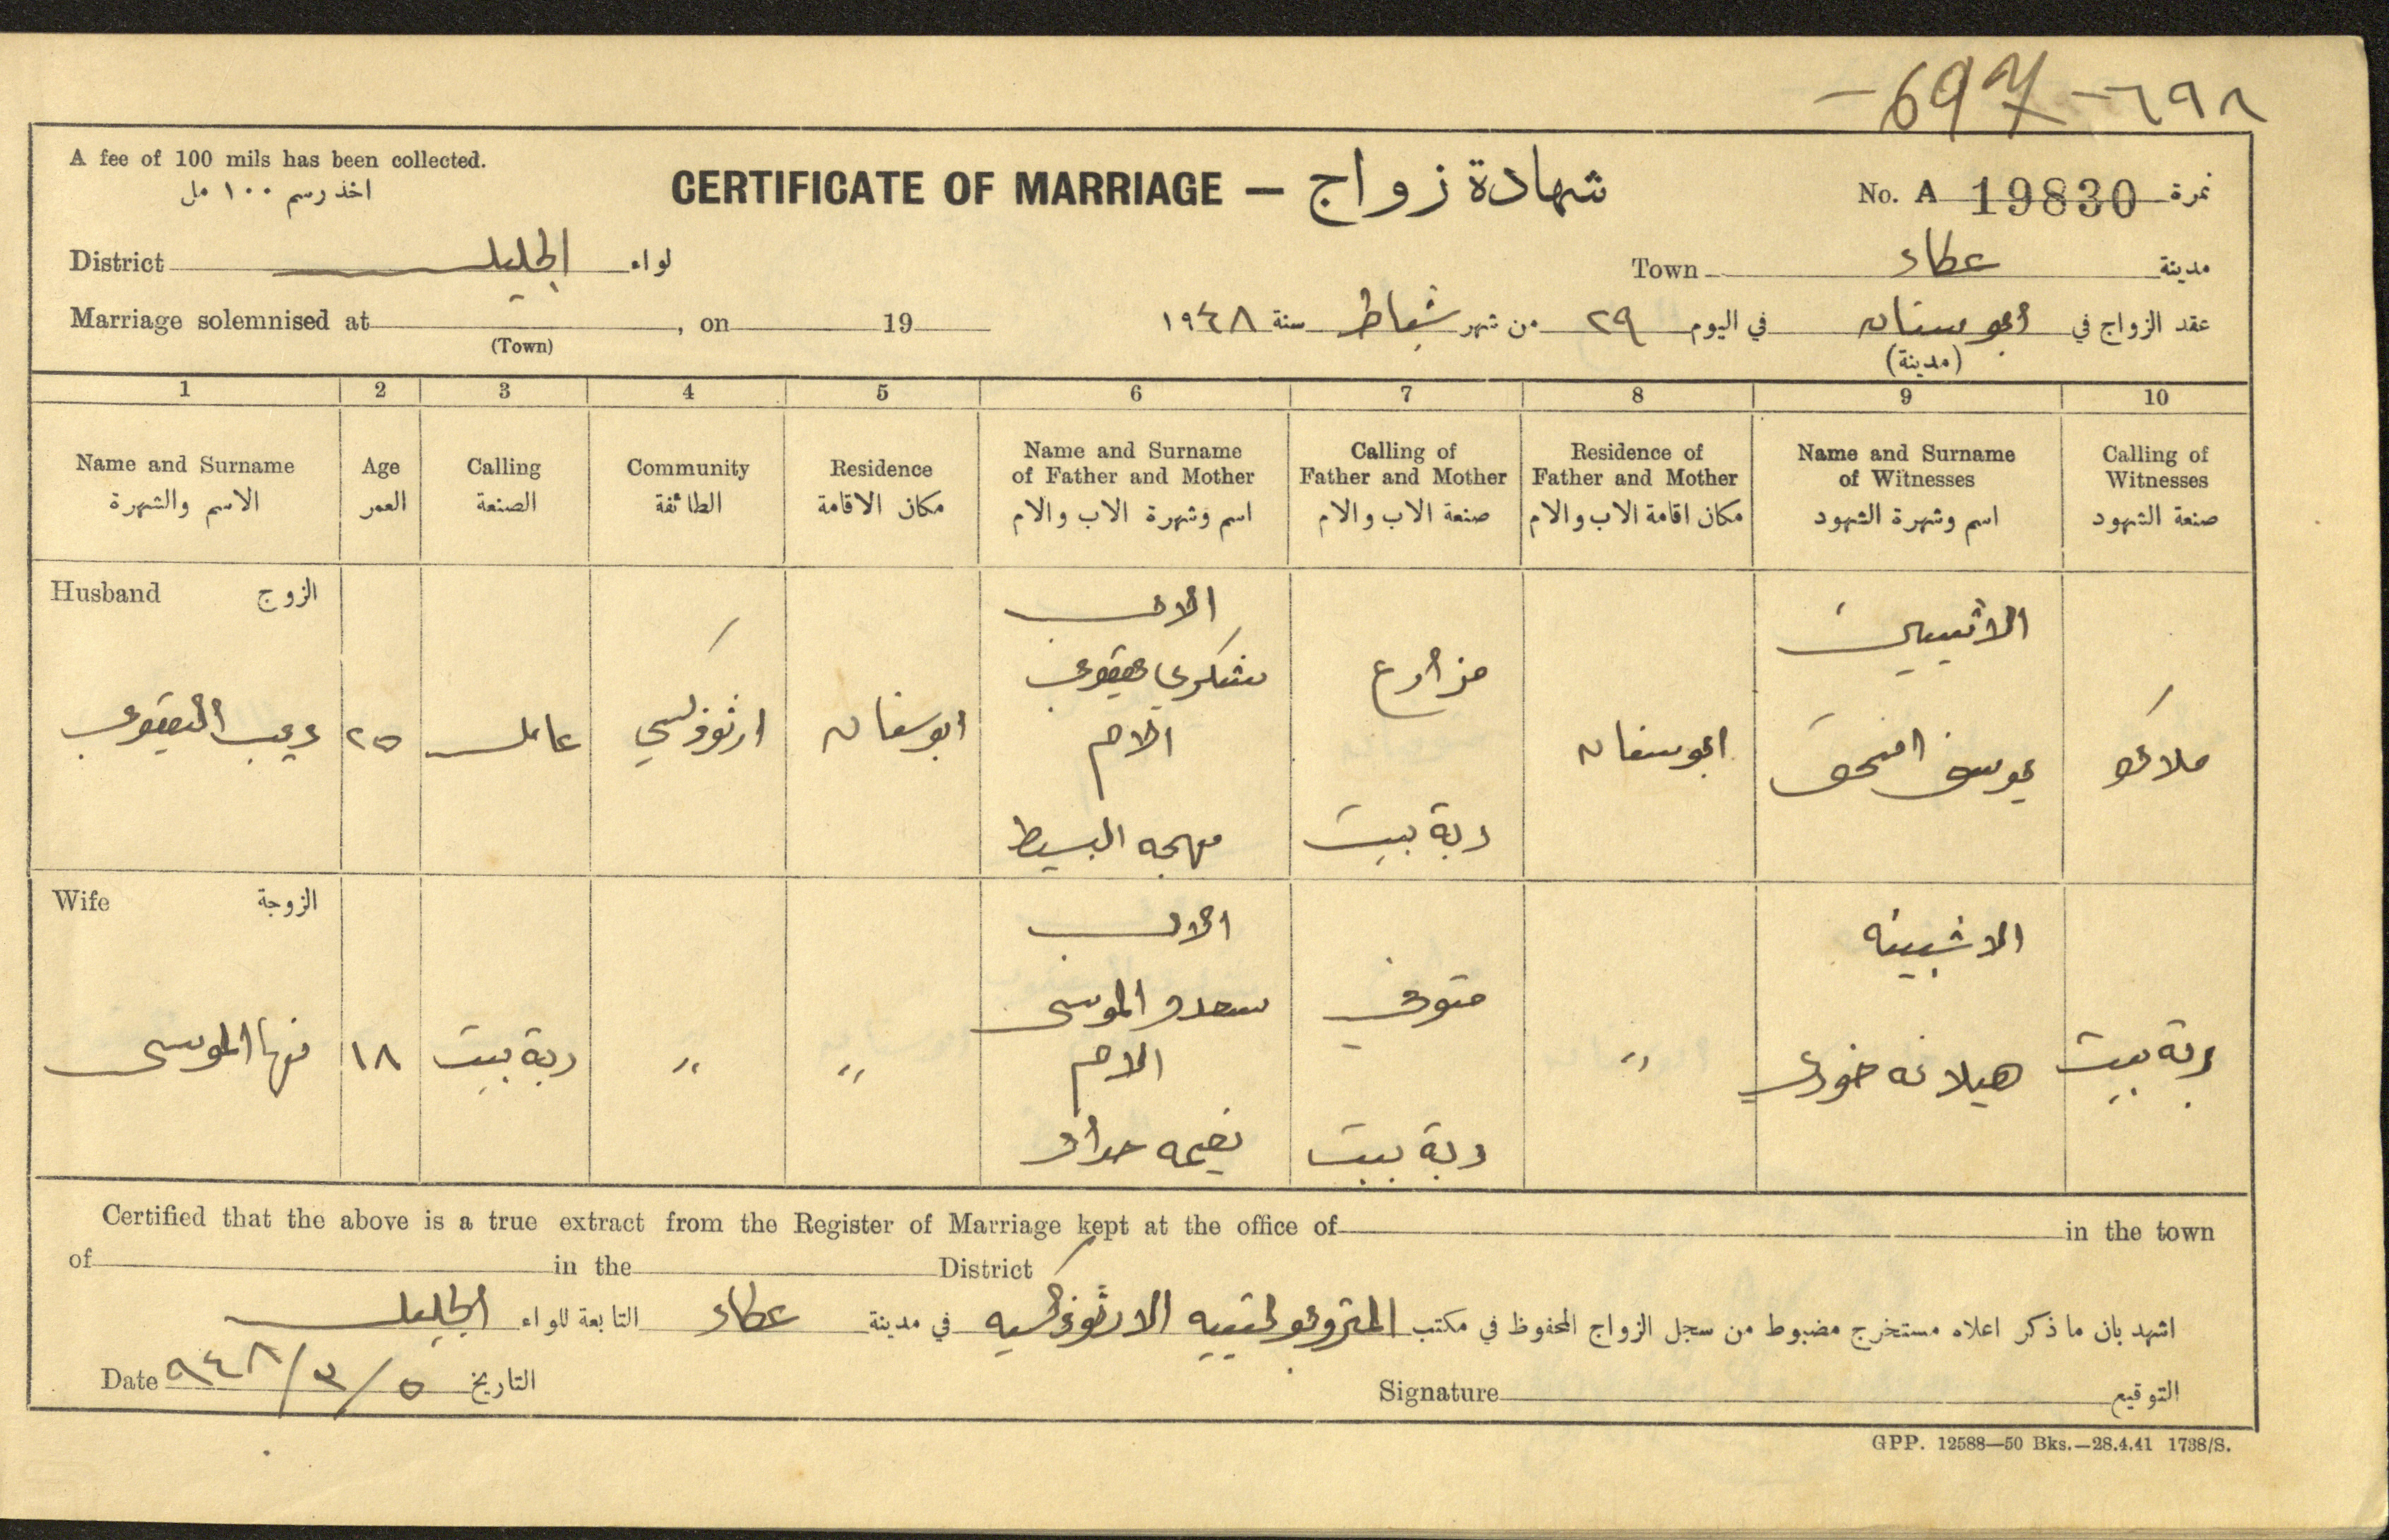 -697- -٦٩٨
A fee of 100 mils has been collected.
اخذ رسم ١٠٠ مل
CERTIFICATE OF MARRIAGE — شهادة زواج
No. A 19830 نمرة
District الجليل لواء
Town عكاء مدينة
Marriage solemnised at , on 19
(Town)
عقد الزواج في ابو سنان في اليوم ٢٩ من شهر شباط سنة ١٩٤٨
(مدينة)
1 2 3 4 5 6 7 8 9 10
Name and Surname
الاسم والشهرة
Age
العمر
Calling
الصنعة
Community
الطائفة
Residence
مكان الاقامة
Name and Surname
of Father and Mother
اسم وشهرة الاب والام
Calling of
Father and Mother
صنعة الاب والام
Residence of
Father and Mother
مكان اقامة الاب والام
Name and Surname
of Witnesses
اسم وشهرة الشهود
Calling of
Witnesses
صنعة الشهود
Husband الزوج
ديب اليعقوب
٢٥
عامل
ارثوذكسي
ابو سنان
الاب
شكري يعقوب
الام
مهجه البسيط
مزارع
ربة بيت
ابو سنان
الاشبين
يوسف اسحق
ملاك
Wife الزوجة
مها الموسى
١٨
ربة بيت
"
"
الاب
سعدو الموسى
الام
نعيمه حداد
متوفي
ربة بيت
"
الاشبينه
هيلانه خوري
ربة بيت
Certified that the above is a true extract from the Register of Marriage kept at the office of in the town
of in the District
اشهد بان ما ذكر اعلاه مستخرج مضبوط من سجل الزواج المحفوظ في مكتب المتروبوليتيه الارثوذكسيه في مدينة عكاء التابعة للواء الجليل
Date ٥/٣/٩٤٨ التاريخ
Signature التوقيع
GPP. 12588—50 Bks.—28.4.41 1738/S.